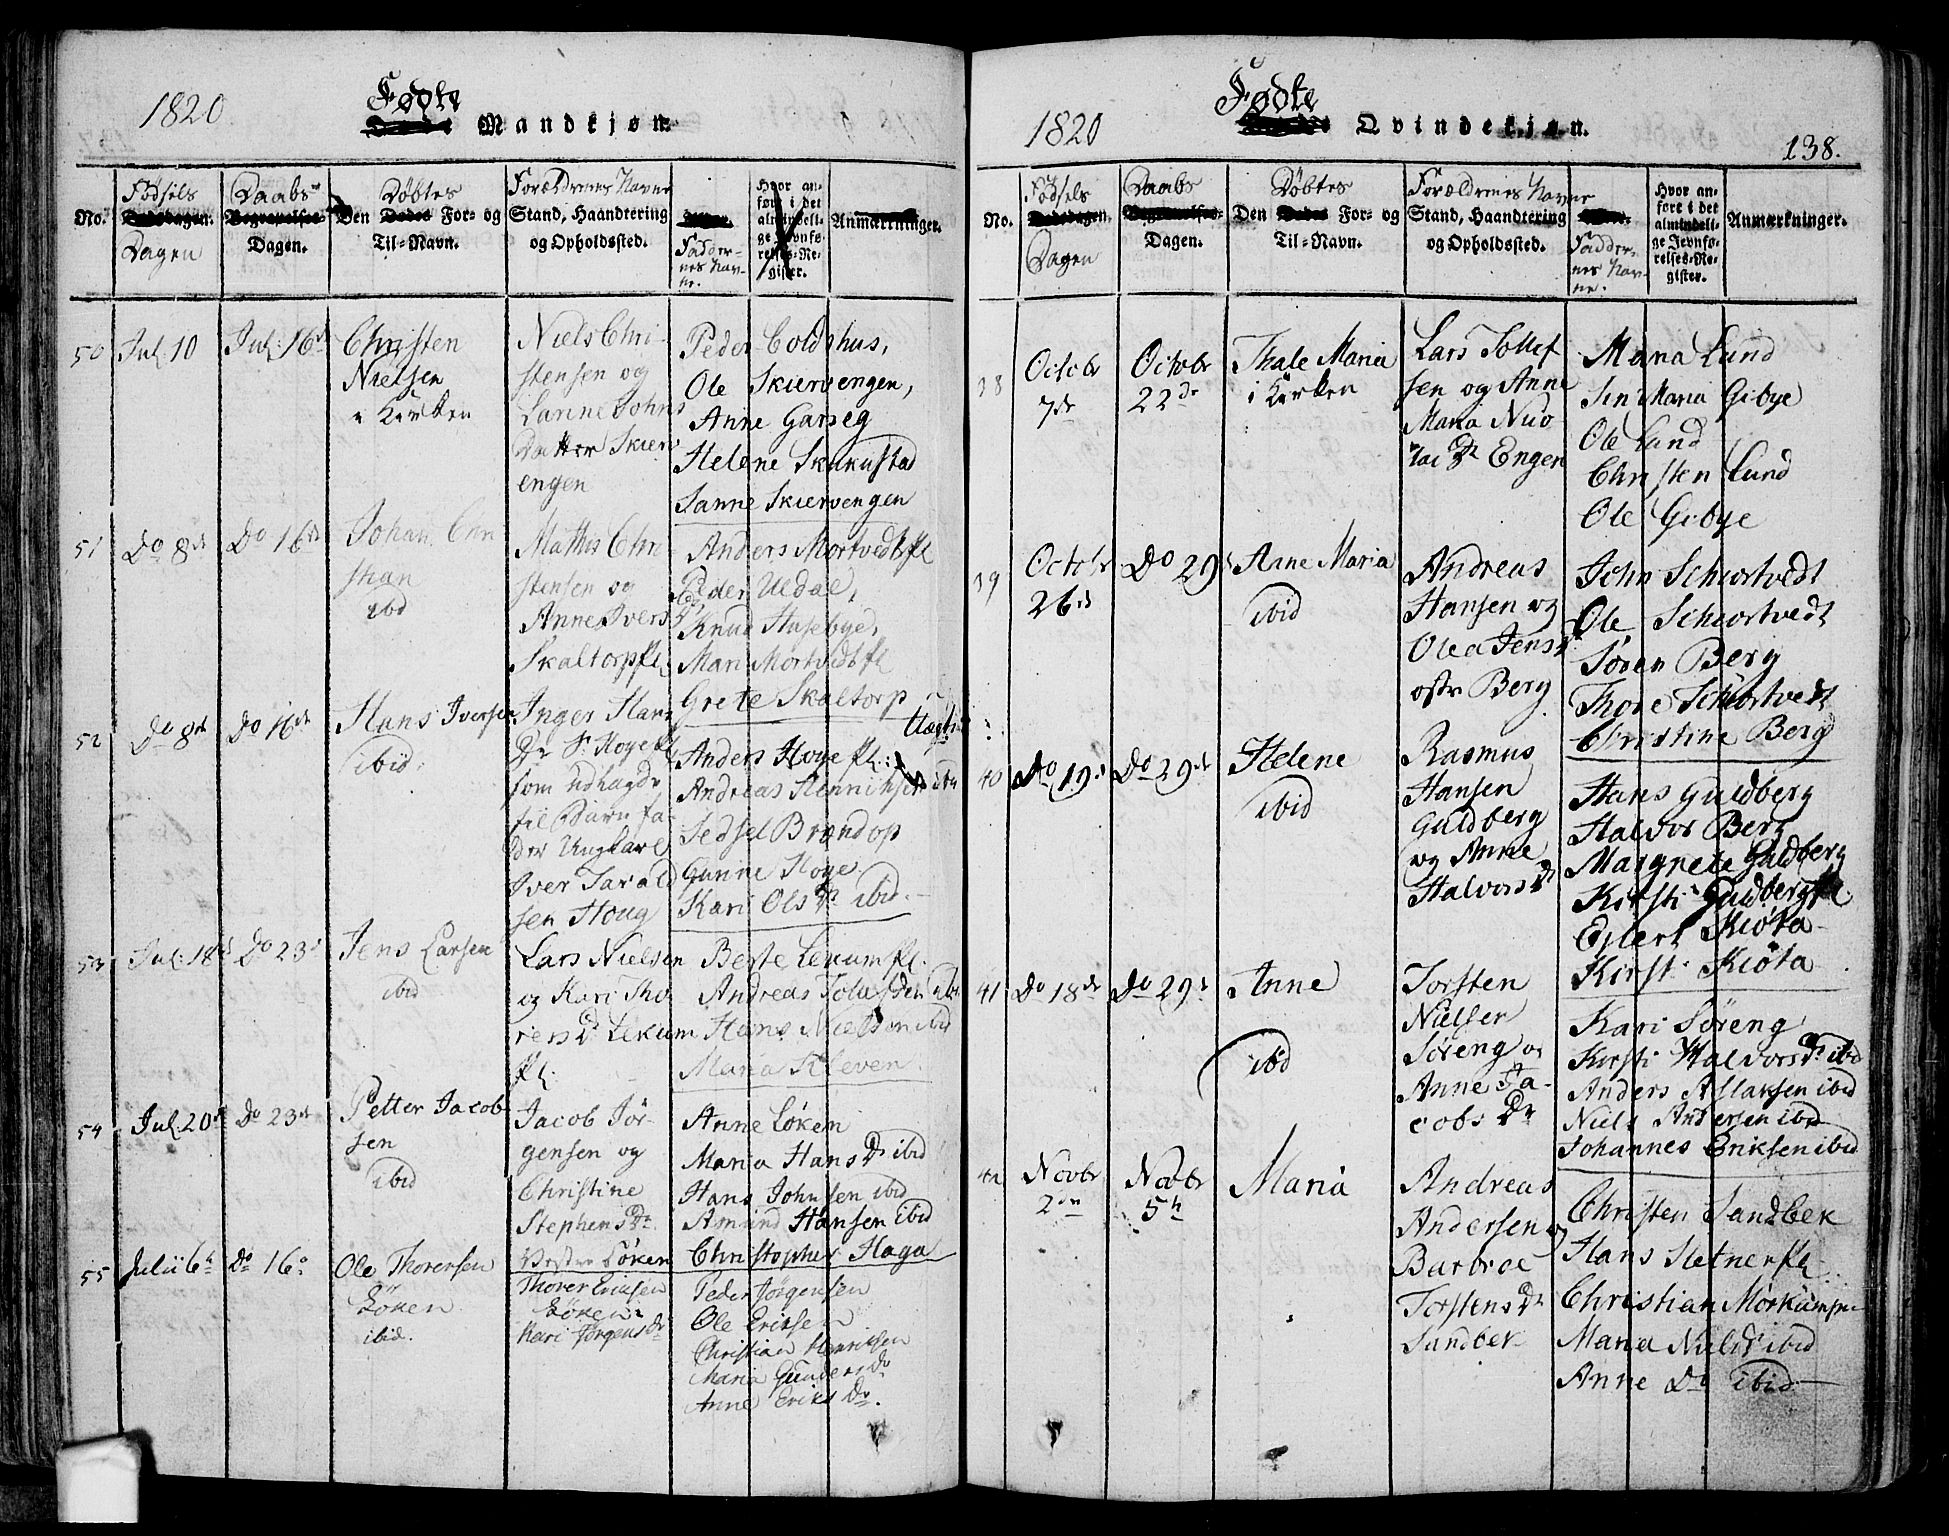 1820. Fødte Mandkjøn.
No. Fødsels Dagen Daabs Dagen. Den Døbtes For- og Til-Navn. Forældrenes Navne Stand, Haandtering og Opholdssted. Faddernes Navne. Hvor anført i det almindelige Jevnførelses-Register. Anmærkninger.
50 Jul. 10 Jul. 16d
Christen
Nielsen
i Kirken
Niels Chri-
stensen og
Datter Skierv
engen
Peder Coldshus,
Ole Skiervengen,
Anne Garseg
Helene Skukustad
Sanne Skiervengen
51 Do 8de Do 16de
Johan Chri
stian
ibid
Mathis Chri-
stensen og
Anne Ivers
Skaltorp fl.
Anders Mortvedt fl
Peder Uedal,
Knud Husebye,
Mari Mortvedt fl
Grete Skaltorp
52 Do 8de Do 16de
Hans Iversen
ibid.
Inger Hans
som udlagde
til Barnfa-
der Ungkarl
Iver Tarald
sen Houg
Anders Hoye fl.
Andreas Henriksen ibid
Sedsel Brandop
Gunne Hoye
Kari Ols Dr ibid.
53 Jul. 18de Do 23d
Jens Larsen
ibid
Lars Nielsen
og Kari Tho
rers Dr Lekum
fl.
Berte Lekum fl.
Andreas
Hans Nielsen ibid
Maria Kleven
54 Jul. 20de Do 23de
Petter Jacob
sen
ibid
Jacob Jør-
gensen og
Christine
Stephens Dr
Vestre Løken
Anne Løken
Maria Hans Dr ibid
Hans Johnsen ibid
Amund Hansen ibid
Christopher Haga
55 Julii 6te Do 16o
Ole Thorersen
Løken
ibid.
Thorer Eriksen
Løken
Kari Jørgens Dr
Peder Jørgensen
Ole Eriksen
Christian Henriksen
Maria Gunders Dr
Anne Eriks Dr.
1820 Fødte Qvindekjøn.
138.
No. Fødsels Dagen Daabs Dagen. Den Døbtes For- og Til-Navn. Forældrenes Navne Stand, Haandtering og Opholdssted. Faddernes Navne. Hvor anført i det almindelige Jevnførelses-Register. Anmærkninger.
38 Octobr Octobr
7de 22de
Thale Maria
i Kirken
Lars Tollef
sen og Anne
Maria Nico
lai Dr Engen
Maria Lund
Maria Gibye
Ole Lund
Christen Lund
Ole Gibye
39 Octobr Do 29d
26d
Anne Maria
ibid
Andreas
Hansen og
Olea Jens
østr Berg
John Schortvedt
Ole Schortvedt
Søren Berg
Thore Schortvedt
Christine Berg
40 Do 19d Do 29de
Helene
ibid
Rasmus
Hansen
Guldberg
og Anne
Halvors Dr
Hans Guldberg
Halvor Berg
Margnete Guldberg
Kirsti Guldberg fl.
Ejlert Kiøta
Kirsti Kiøta
41 Do 18de Do 29d
Anne
ibid
Torsten
Nielsen
Søreng og
Anne Ja-
cobs Dr
Kari Søreng
Kirsti Halvors Dr ibid
Anders Aslaksen ibid
Niels Andersen ibid
Johannes Eriksen ibid
42 Novbr Novbr
2den 5te
Maria
Andreas
Andersen og
Barbroe
Torstens Dr
Sandbek
Christen Sandbek
Hans Sletner fl
Christian Morkum
Maria Niels Dr ibid
Anne Do ibid